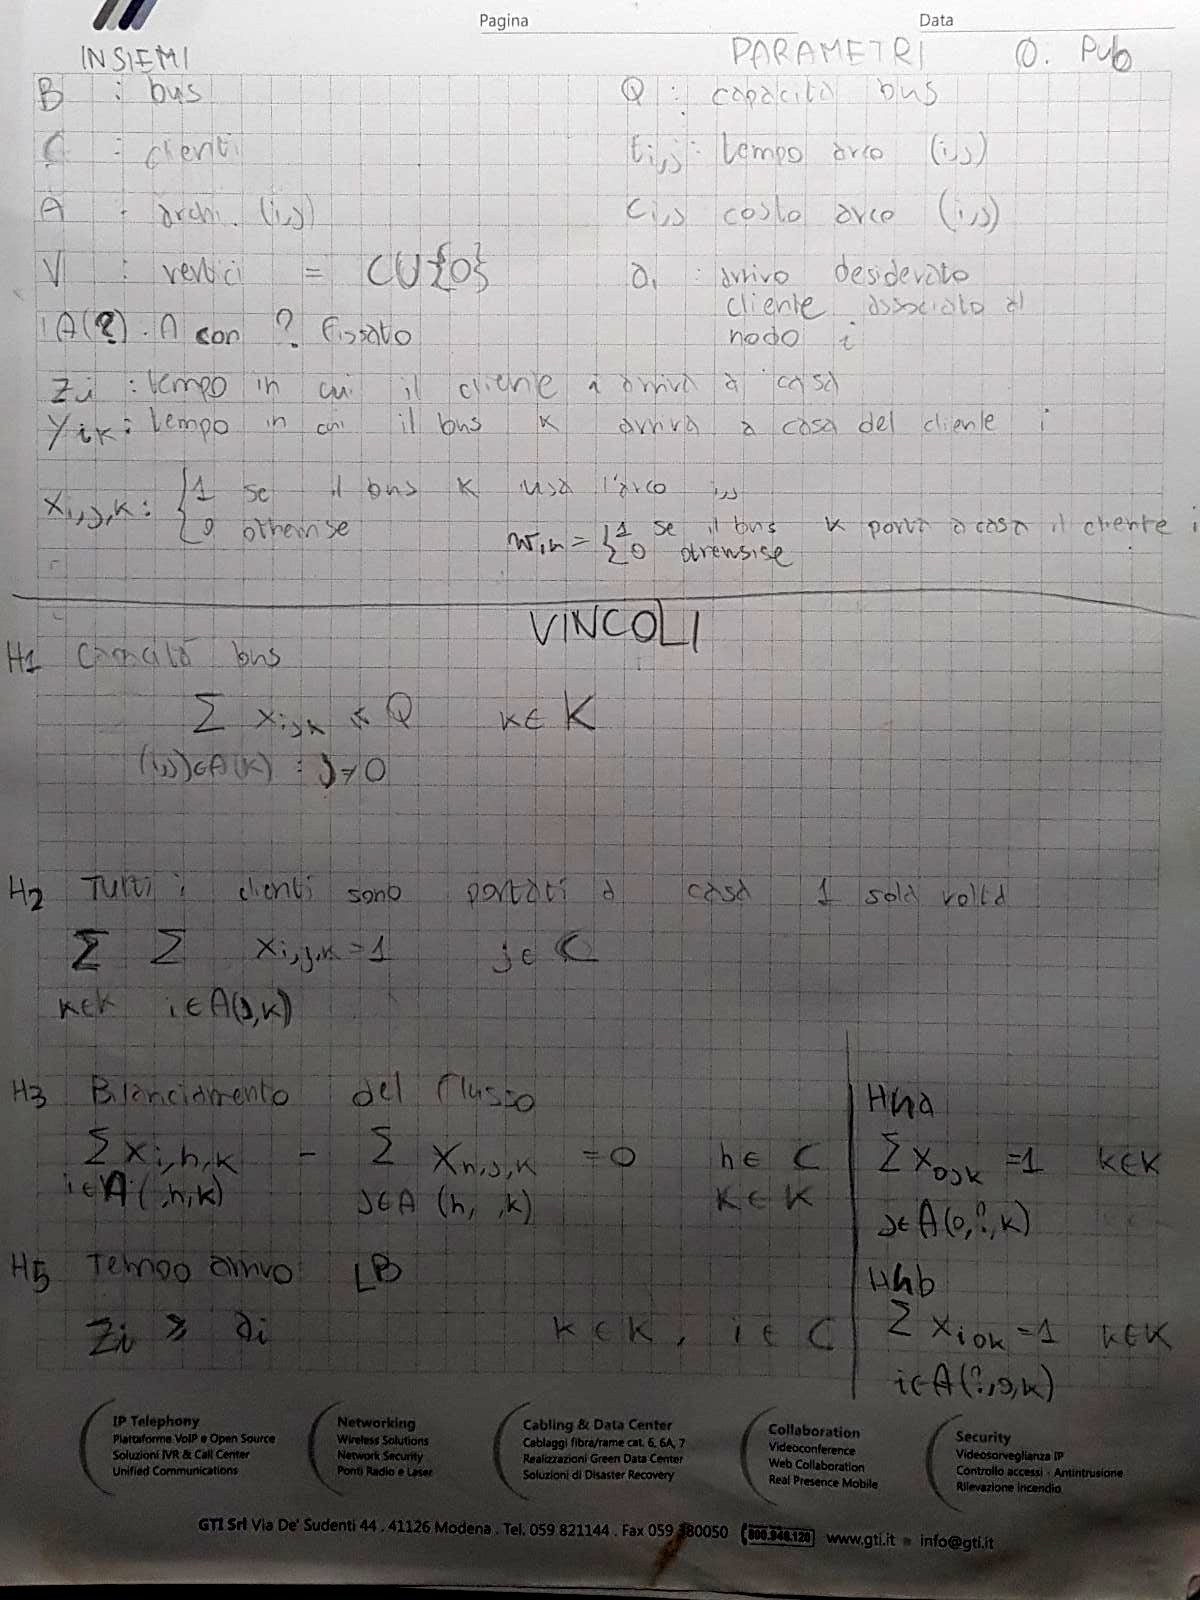 Pagina Data
INSIEMI PARAMETRI 0. Pub
B : bus Q : capacità bus
C : clienti ti,j : tempo arco (i,j)
A : archi (i,j) ci,j costo arco (i,j)
V : vertici = CU{0} ai : arrivo desiderato
cliente associato al
A(?) . A con ? fissato nodo i
Zi : tempo in cui il cliente i arriva a casa
Yik : tempo in cui il bus K arriva a casa del cliente i
xi,j,k : {1 se il bus K usa l'arco i,j
0 otherwise wik = {1 se il bus K porta a casa il cliente i
0 otherwise
VINCOLI
H1 Capacità bus
Σ xijk ≤ Q k∈K
(i,j)∈A(K) : j≠0
H2 Tutti i clienti sono portati a casa 1 sola volta
Σ Σ xi,j,k = 1 j∈C
k∈K i∈A(j,k)
H3 Bilanciamento del flusso
Σ xi,h,k - Σ xh,j,k = 0 h∈C
i∈A( ,h,k) j∈A (h, ,k) K∈K
H4a
Σ x0jk = 1 k∈K
j∈A(0,?,k)
H5 Tempo arrivo LB
Zi ≥ ai k∈K, i∈C
H4b
Σ xi0k = 1 k∈K
i∈A(?,0,k)
IP Telephony
Piattaforme VoIP e Open Source
Soluzioni IVR & Call Center
Unified Communications
Networking
Wireless Solutions
Network Security
Ponti Radio e Laser
Cabling & Data Center
Cablaggi fibra/rame cat. 6, 6A, 7
Realizzazioni Green Data Center
Soluzioni di Disaster Recovery
Collaboration
Videoconference
Web Collaboration
Real Presence Mobile
Security
Videosorveglianza IP
Controllo accessi - Antintrusione
Rilevazione incendio
GTI Srl Via De' Sudenti 44 . 41126 Modena . Tel. 059 821144 . Fax 059 380050 800.946.120 www.gti.it info@gti.it